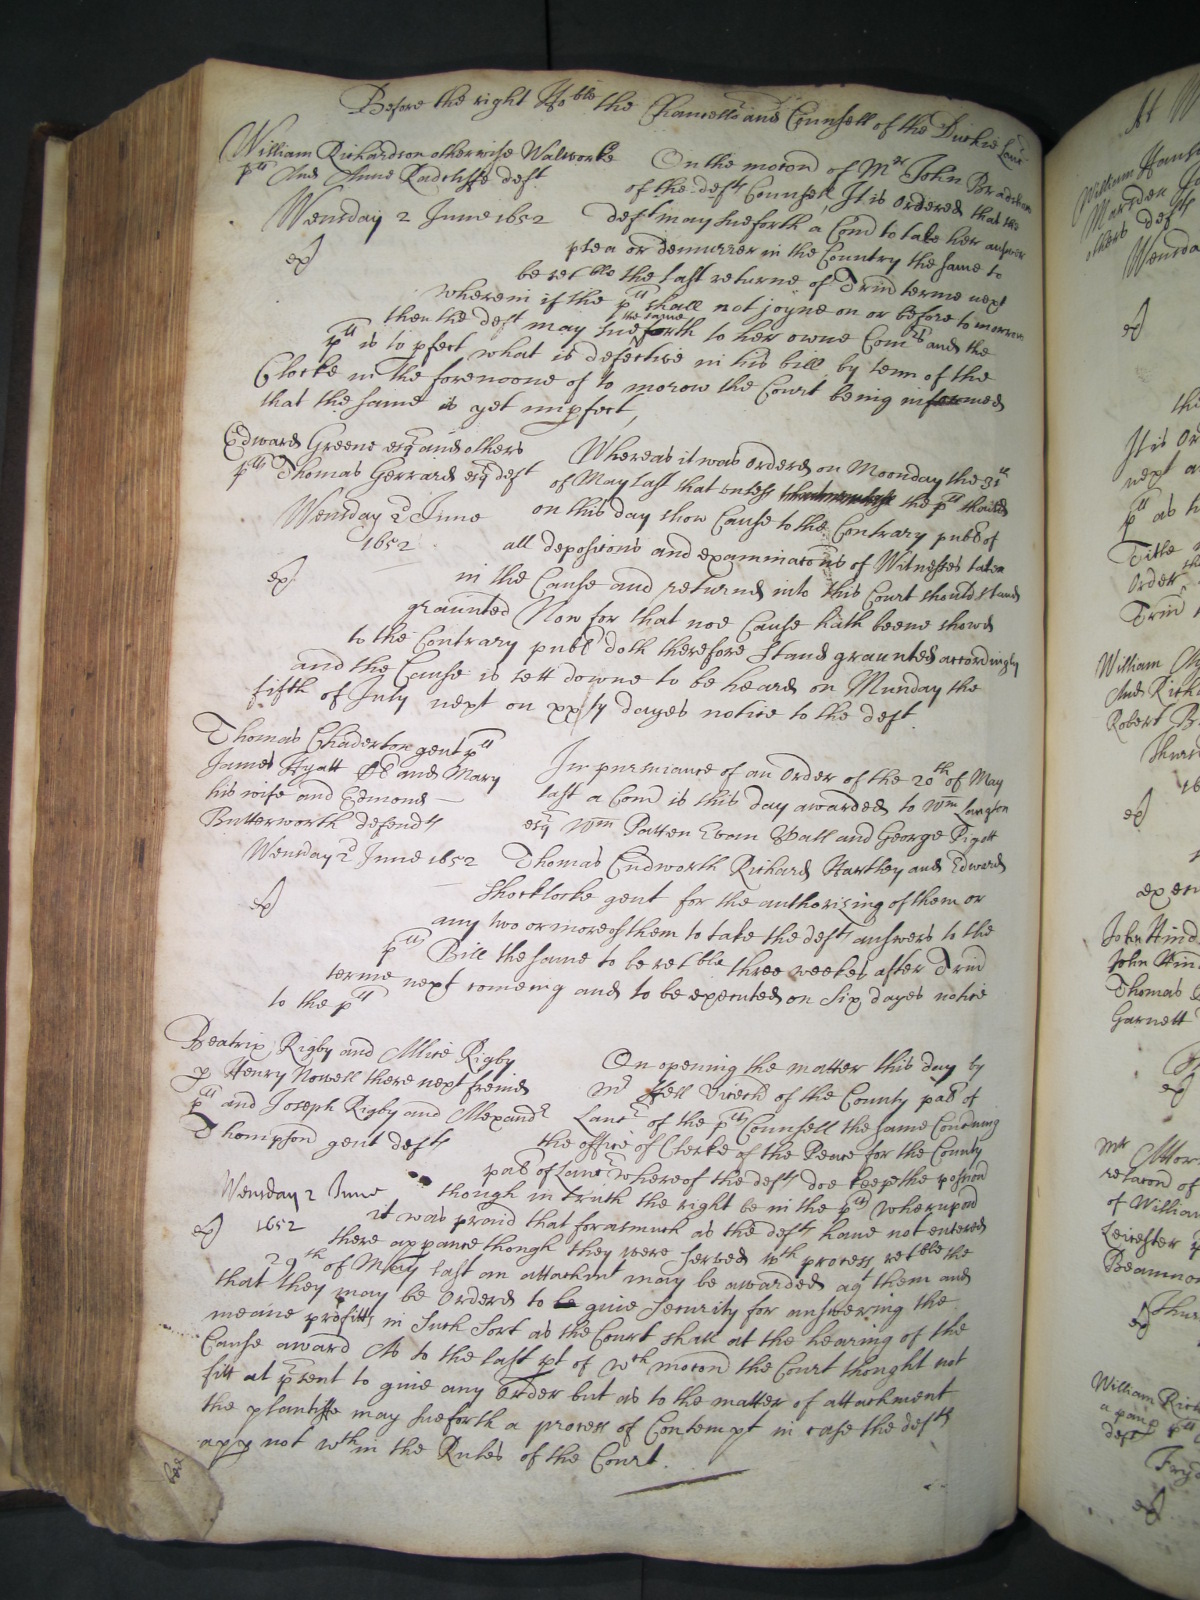 Before the right Hoble the Chancellr and Counsell of the Duchie Court
William Richardson otherwise Walworke
pltt And Anne Radcliffe deft
Wensday 2 June 1652
ex
On the mocon of Mr John Bradshaw
of the defts Counsell, It is Ordered that the
deft may sue forth a Comd to take her answer
plea or demurrer in the Country the same to
be retble the last returne of Trin terme next
wherein if the pltt shall not joyne on or before to morrow
then the deft may sue the same forth to her owne Comrs and the
pltt is to pfect what is defective in his bill by tenn of the
Clocke in the forenoone of to morow the Court being informed
that the same is yet impfect,
Edward Greene esqr and others
pltts Thomas Gerrard esqr deft
Wensday 2d June
1652
ex
Whereas it was Ordered on Moonday the 31th
of May last that unless the pltt should
on this day show Cause to the Contrary publ of
all deposicons and examinacons of Witnesses taken
in the Cause and returned into this Court should stand
graunted Now for that noe Cause hath beene showed
to the Contrary publ doth therefore stand graunted accordingly
and the Cause is sett downe to be heard on Munday the
fifth of July next on xxty dayes notice to the deft
Thomas Chaderton gent pltt
James Hyatt and Mary
his wife and Edmond
Butterworth defendts
Wensday 2d June 1652
ex
In pursuance of an Order of the 20th of May
last a Comd is this day awarded to Wm Langton
esqr Wm Patten Evan Wall and George Pigott
Thomas Cudworth Richard Hartley and Edward
Shocklocke gent for the authorizing of them or
any two or more of them to take the defts answers to the
pltts Bill the same to be retble three weekes after Trin
terme next comeing and to be executed on six dayes notice
to the pltt
Beatrix Rigby and Allice Rigby
p Henry Nowell there next freind
pltts and Joseph Rigby and Alexandr
Thompson gent defts
Wensday 2 June
1652
ex
On opening the matter this day by
Mr Fell Vicechr of the County pal of
Lancr of the pltts Counsell the same Concerning
the office of Clerke of the Peace for the County
pal of Lancr whereof the defts doe keepe the possion
though in truth the right be in the pltts wherupon
it was praied that forasmuch as the defts have not entered
there appance though they were served wth process retble the
29th of May last an attachmt may be awarded agt them and
that they may be Ordered to give security for answering the
meane profitts in such sort as the Court shall at the hearing of the
Cause award As to the last pt of wch mocon the Court thought not
fitt at psent to give any Order but as to the matter of attachment
the plantiffe may sue forth a process of Contempt in case the defts
appr not wthin the Rules of the Court.